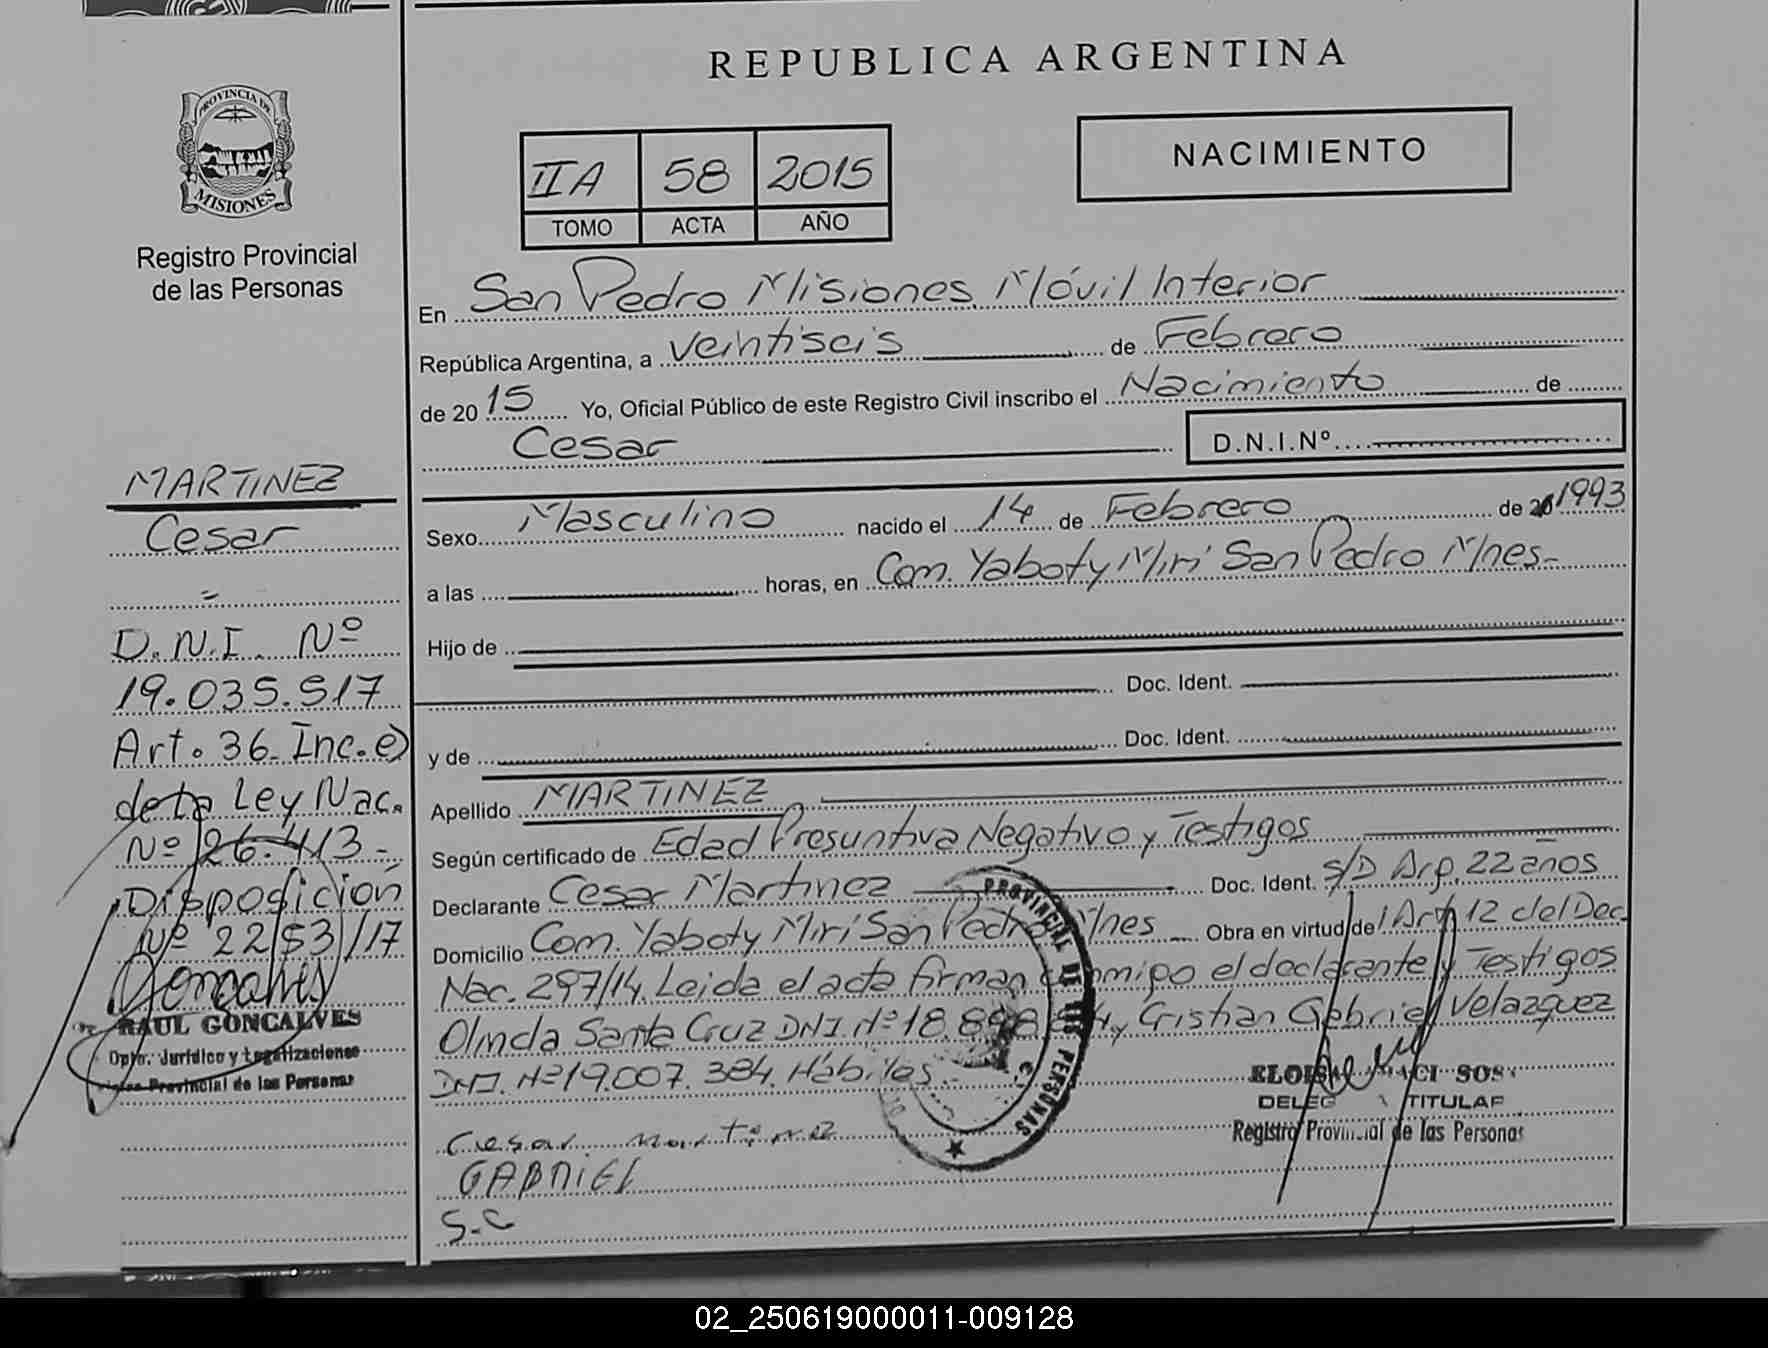 REPUBLICA ARGENTINA
PROVINCIA DE
MISIONES
Registro Provincial
de las Personas
NACIMIENTO
IIA 58 2015
TOMO ACTA AÑO
En San Pedro Misiones Móvil Interior
República Argentina, a veintiseis de Febrero
de 2015 Yo, Oficial Público de este Registro Civil inscribo el Nacimiento de
Cesar D.N.I.Nº
Sexo Masculino nacido el 14 de Febrero de 1993
a las horas, en Com. Yaboty Miri San Pedro Mnes-
Hijo de
Doc. Ident.
y de Doc. Ident.
Apellido MARTINEZ
Según certificado de Edad Presuntiva Negativo y Testigos
Declarante Cesar Martinez Doc. Ident. s/D Arg. 22 años
Domicilio Com. Yaboty Miri San Pedro Mnes Obra en virtud de Art 12 del Dec.
Nac. 297/14. Leida el acta firman conmigo el declarante y Testigos
Olinda Santa Cruz DNI. Nº 18.898. 4, y Cristian Gabriel Velazquez
DNI. Nº 19.007.384. Hábiles.
Cesar martinez
GABRIEL
S.C
PROVINCIAL DE LAS PERSONAS
DELEG TITULAR
Registro Provincial de las Personas
MARTINEZ
Cesar
=
D.N.I. Nº
19.035.517
Art. 36. Inc. e)
de la Ley Nac.
Nº 26.413-
Disposición
Nº 2253/17
Goncalves
RAUL GONCALVES
Dpto. Jurídico y Legalizaciones
Provincial de las Personas
02_250619000011-009128